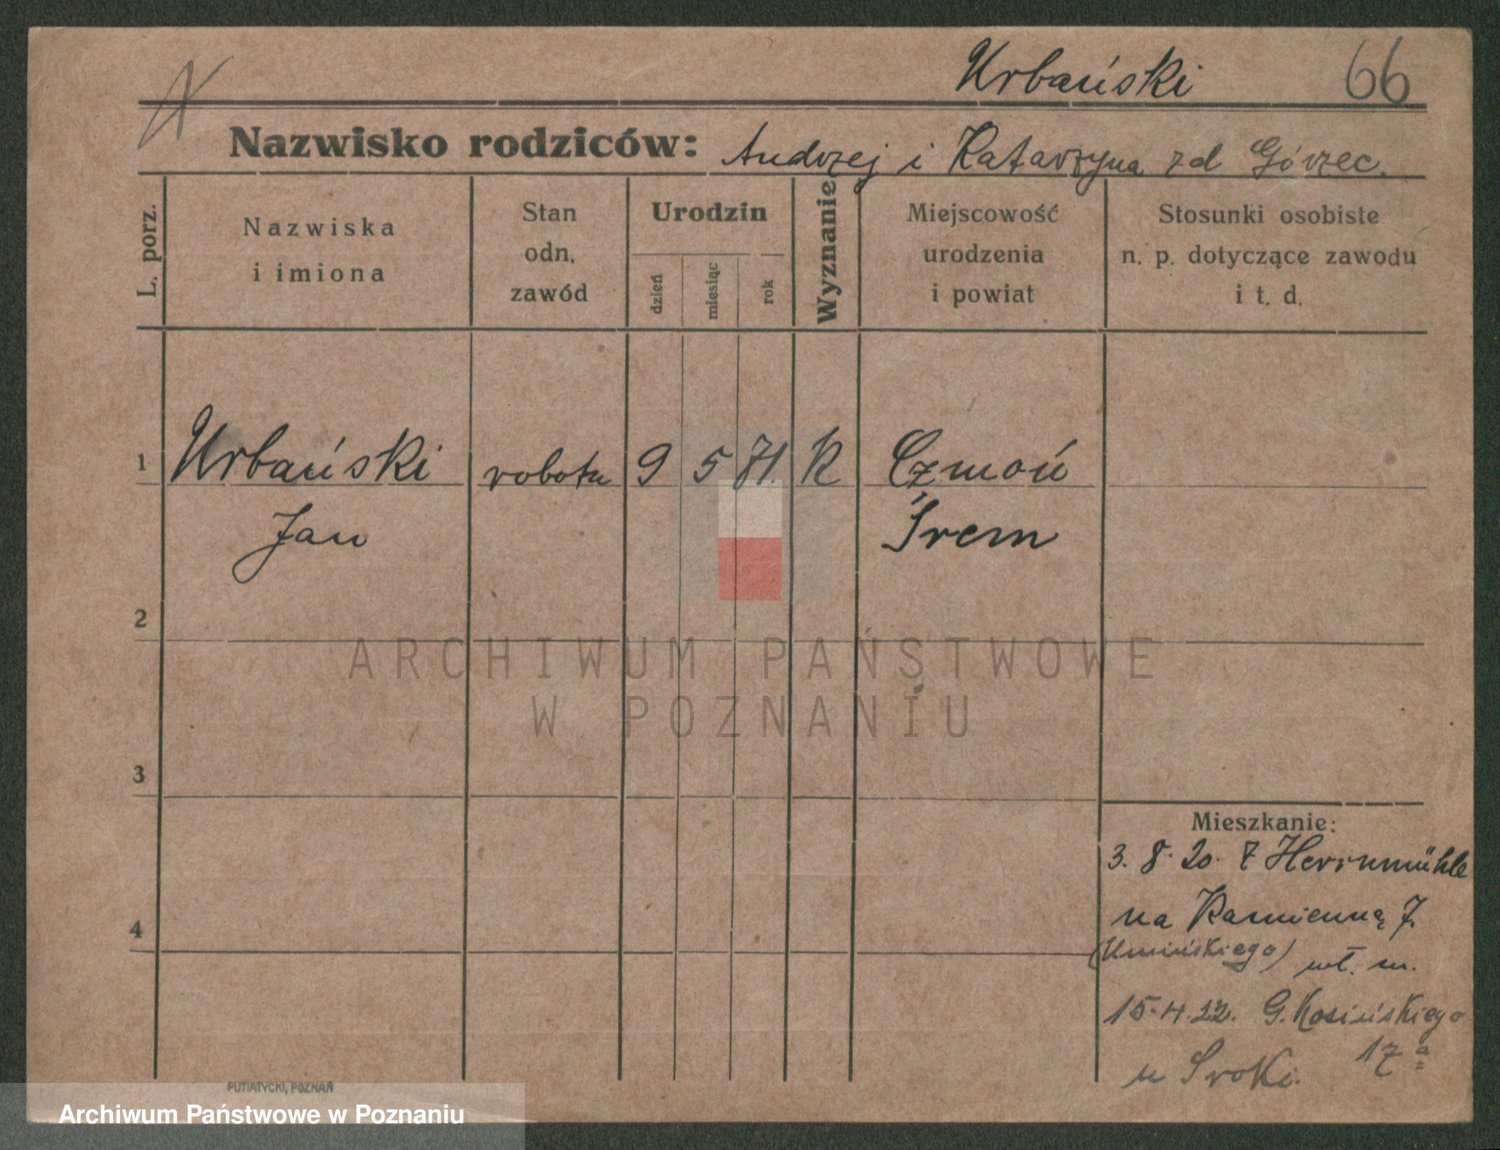 Urbański 66
Nazwisko rodziców: Andrzej i Katarzyna zd Górzec.
L. porz.
Nazwiska
i imiona
Stan
odn.
zawód
Urodzin
dzień
miesiąc
rok
Wyznanie
Miejscowość
urodzenia
i powiat
Stosunki osobiste
n. p. dotyczące zawodu
i t. d.
1 Urbański robotn 9 5 71. K Czmoń
Jan Śrem
2
ARCHIWUM PAŃSTWOWE
W POZNANIU
3
Mieszkanie:
3. 8. 20. Z Herrnmühle
4 na Kamienną 7.
(Umińskiego) wł. m.
15.4.22. G. Kosińskiego
17a
u Sroki.
PUTIATYCKI, POZNAŃ
Archiwum Państwowe w Poznaniu